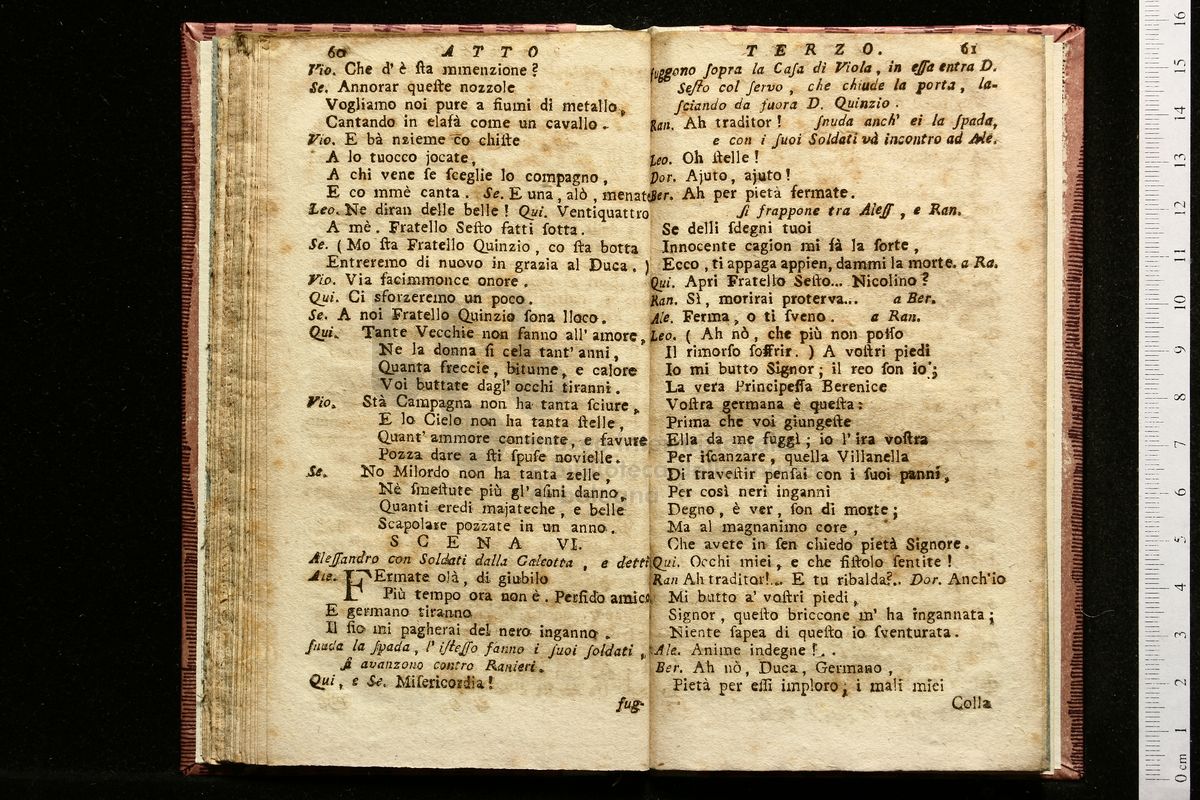 60 ATTO
Vio. Che d' è ſta mmenzione?
Se. Annorar queſte nozzole
Vogliamo noi pure a fiumi di metallo,
Cantando in elaſà come un cavallo.
Vio. E bà nzieme co chiſte
A lo tuocco jocate,
A chi vene ſe ſceglie lo compagno,
E co mmè canta. Se. E una, alò, menate
Leo. Ne diran delle belle! Qui. Ventiquattro
A mè. Fratello Seſto fatti ſotta.
Se. (Mo ſta Fratello Quinzio, co ſta botta
Entreremo di nuovo in grazia al Duca.)
Vio. Via facimmonce onore.
Qui. Ci sforzeremo un poco.
Se. A noi Fratello Quinzio ſona lloco.
Qui. Tante Vecchie non fanno all' amore,
Ne la donna ſi cela tant' anni,
Quanta freccie, bitume, e calore
Voi buttate dagl' occhi tiranni.
Vio. Stà Campagna non ha tanta ſciure,
E lo Cielo non ha tanta ſtelle,
Quant' ammore contiente, e favure
Pozza dare a ſti ſpuſe novielle.
Se. No Milordo non ha tanta zelle,
Nè ſmeſtute più gl' aſini danno,
Quanti eredi majateche, e belle
Scapolare pozzate in un anno.
SCENA VI.
Aleſſandro con Soldati dalla Galeotta, e detti
Ale. FErmate olà, di giubilo
Più tempo ora non è. Perfido amico,
E germano tiranno
Il fio mi pagherai del nero inganno.
ſnuda la ſpada, l' iſteſſo fanno i ſuoi ſoldati,
ſi avanzono contro Ranieri.
Qui, e Se. Miſericordia!
fug-
TERZO. 61
fuggono ſopra la Caſa di Viola, in eſſa entra D.
Seſto col ſervo, che chiude la porta, la-
ſciando da fuora D. Quinzio.
Ran. Ah traditor! ſnuda anch' ei la ſpada,
e con i ſuoi Soldati và incontro ad Ale.
Leo. Oh ſtelle!
Dor. Ajuto, ajuto!
Ber. Ah per pietà fermate.
ſi frappone tra Aleſſ, e Ran.
Se delli ſdegni tuoi
Innocente cagion mi fà la ſorte,
Ecco, ti appaga appien, dammi la morte. a Ra.
Qui. Apri Fratello Seſto... Nicolino?
Ran. Sì, morirai proterva... a Ber.
Ale. Ferma, o ti ſveno. a Ran.
Leo. (Ah nò, che più non poſſo
Il rimorſo ſoffrir.) A voſtri piedi
Io mi butto Signor; il reo ſon io;
La vera Principeſſa Berenice
Voſtra germana è queſta:
Prima che voi giungeſte
Ella da me fuggì; io l' ira voſtra
Per iſcanzare, quella Villanella
Di traveſtir penſai con i ſuoi panni,
Per così neri inganni
Degno, è ver, ſon di morte;
Ma al magnanimo core,
Che avete in ſen chiedo pietà Signore.
Qui. Occhi miei, e che fiſtolo ſentite!
Ran Ah traditor!... E tu ribalda?.. Dor. Anch'io
Mi butto a' voſtri piedi,
Signor, queſto briccone m' ha ingannata;
Niente ſapea di queſto io ſventurata.
Ale. Anime indegne!..
Ber. Ah nò, Duca, Germano,
Pietà per eſſi imploro; i mali miei
Colla
0 cm 1 2 3 4 5 6 7 8 9 10 11 12 13 14 15 16